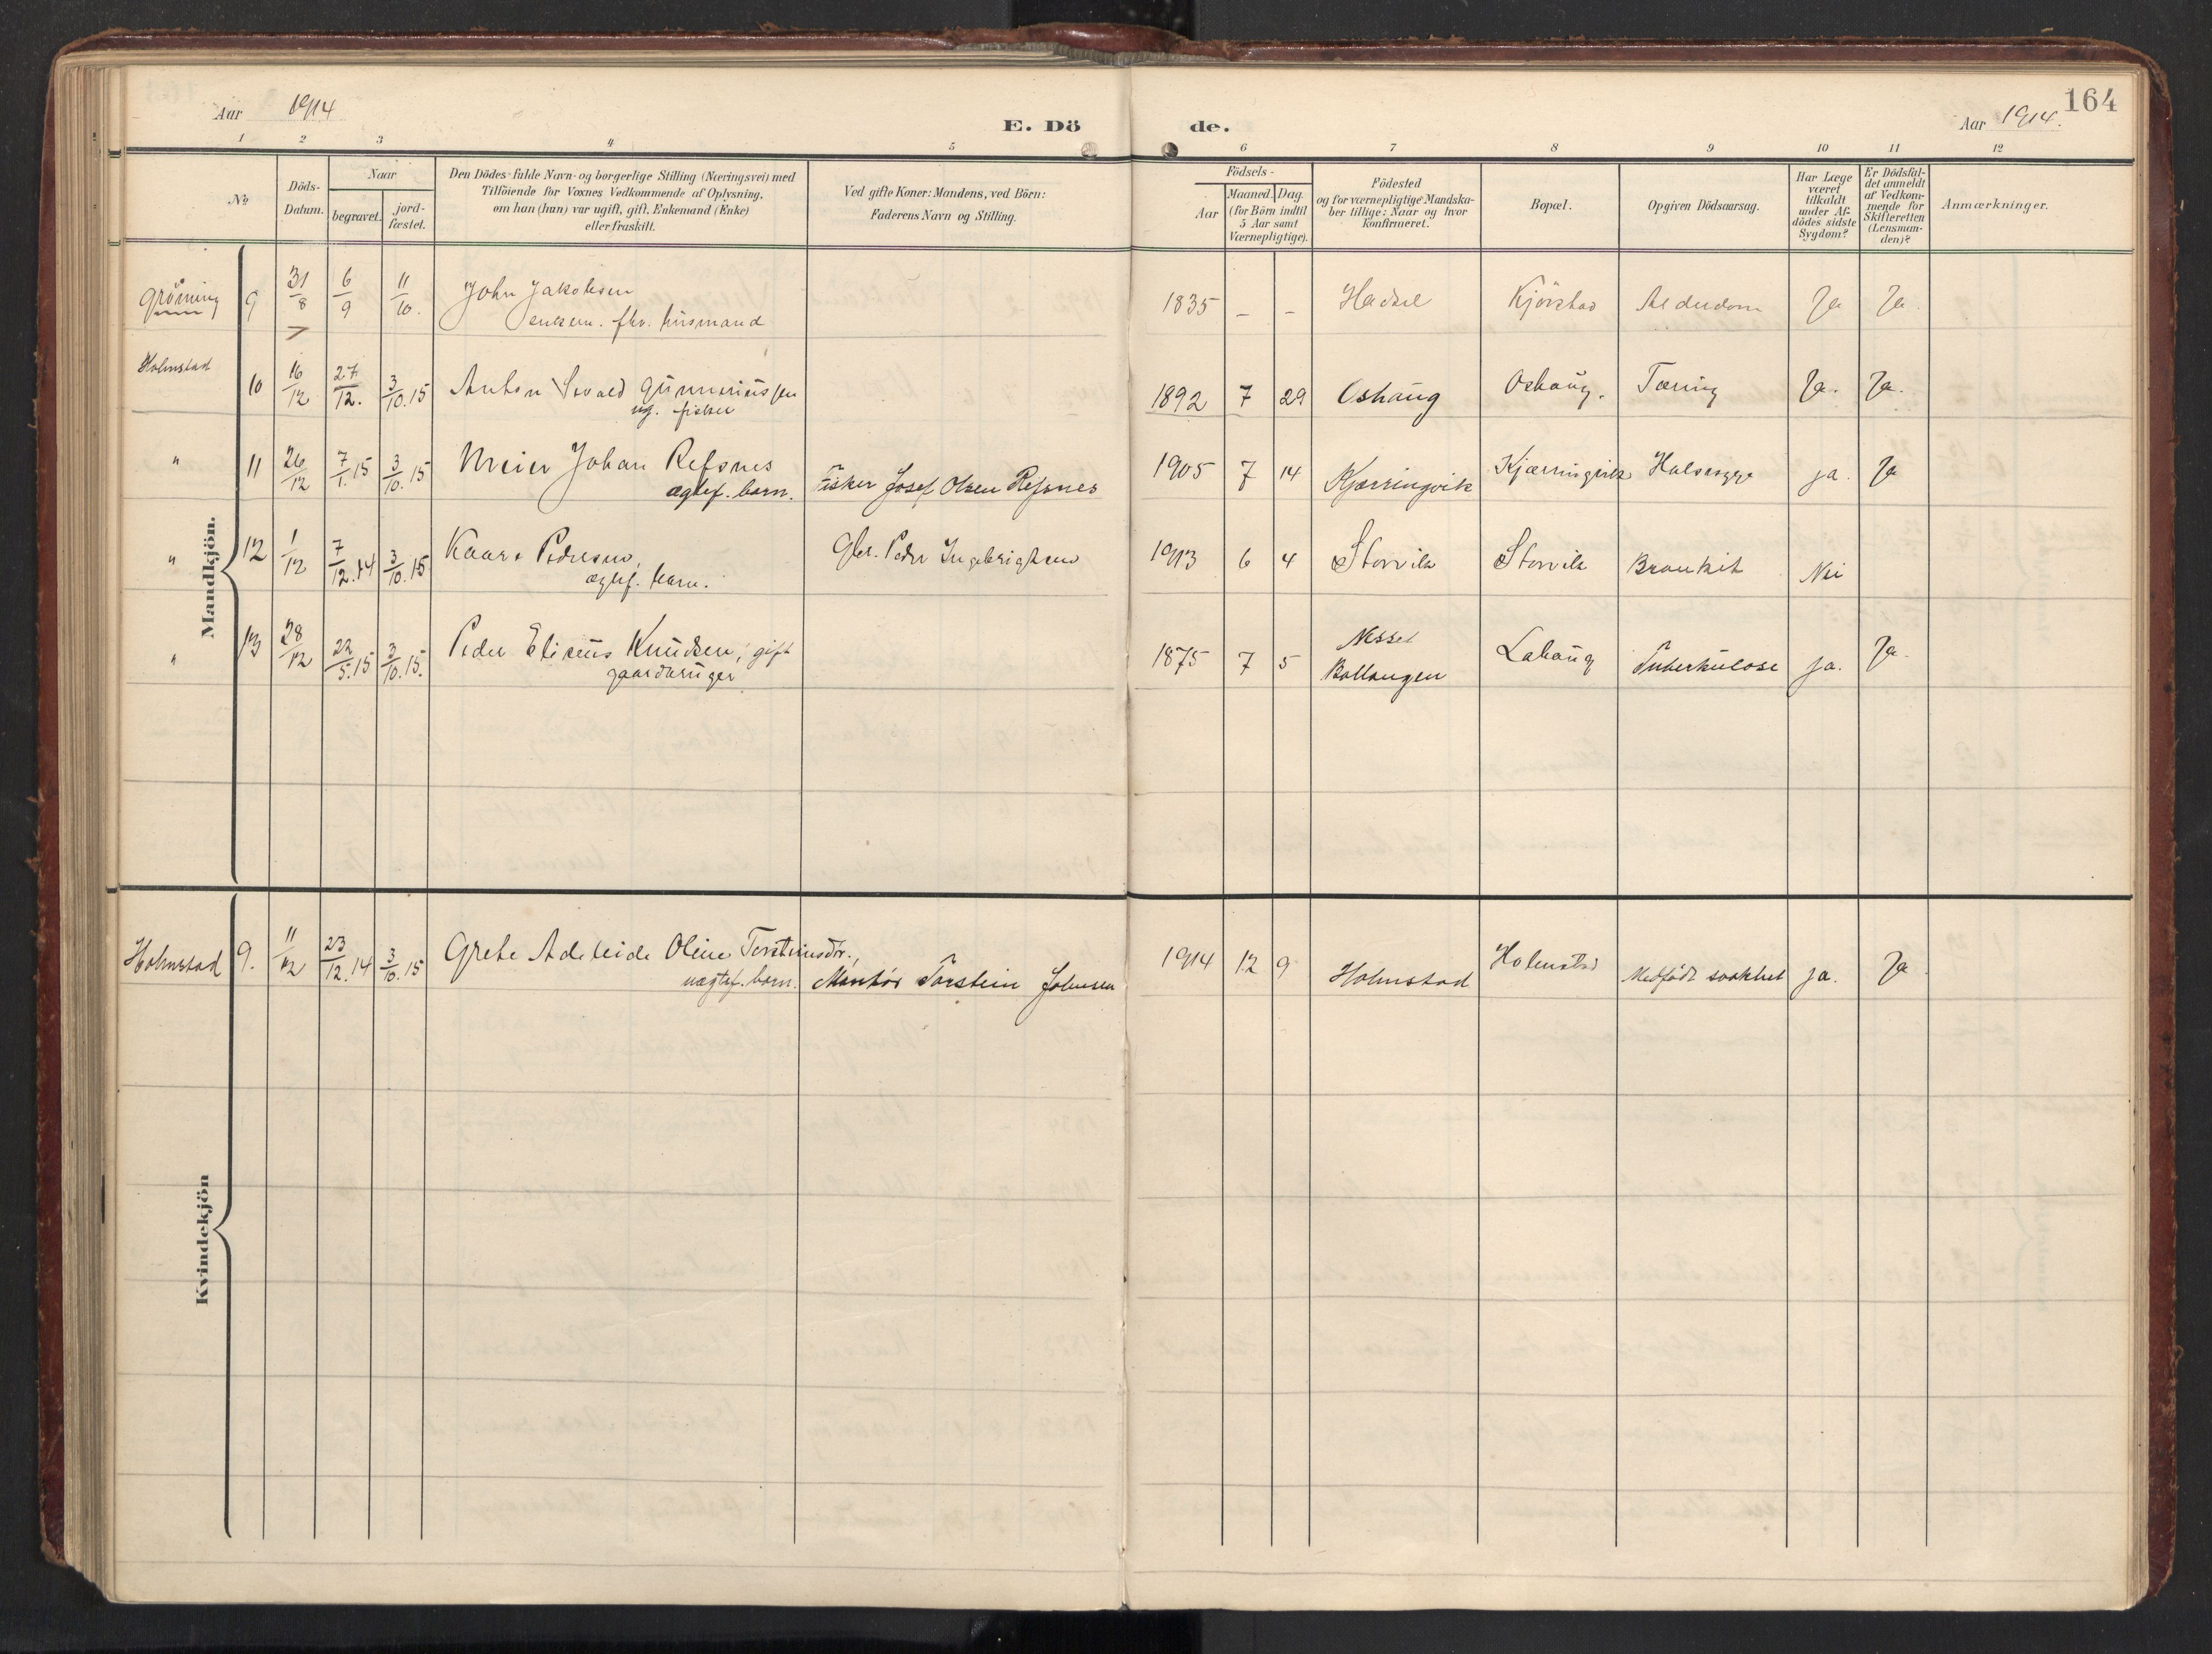 Aar 1914
E. Dö
de.
Aar 1914.
164
1 2 3 4 5 6 7 8 9 10 11 12
No
Döds-
Datum.
Naar
begravet.
jord-
fæstet.
Den Dödes fulde Navn- og borgerlige Stilling (Næringsvei) med
Tilföiende for Voxnes Vedkommende af Oplysning,
om han (hun) var ugift, gift, Enkemand (Enke)
eller fraskilt.
Ved gifte Koner: Mandens, ved Börn:
Faderens Navn og Stilling.
Födsels-
Aar
Maaned. Dag.
(for Börn indtil
5 Aar samt
Værnepligtige).
Födested
og for værnepligtige Mandska-
ber tillige: Naar og hvor
konfirmeret.
Bopæl.
Opgiven Dödsaarsag.
Har Læge
været
tilkaldt
under Af-
dödes sidste
Sygdom?
Er Dödsfal-
det anmeldt
af Vedkom-
mende for
Skifteretten
(Lensman-
den)?
Anmærkninger.
Mandkjön.
Gröning 9 31/8 6/9 11/10. John Jakobsen 1835 - - Hadsel Kjörstad Alderdom Ja Ja.
enkem. fhv. husmand
Holmstad 10 16/12 27/12. 3/10.15 Anton Sevald Gunnariussen 1892 7 29 Oshaug Oshaug. Tæring Ja. Ja.
ug. fisker
" 11 26/12 7/1.15 3/10.15 Meier Johan Refsnes 1905 7 14 Kjærringvik Kjærringvik Halssyge ja. Ja
ægtef. barn. Fisker Josef Olsen Refsnes
" 12 1/12 7/12.14 3/10.15 Kaare Pedersen, Gbr. Peder Ingebrigtsen 1913 6 4 Storvik Storvik Bronkit Nei
ægtef. barn.
" 13 28/12 22/5.15 3/10.15. Peder Eliseus Knudsen, gift 1875 7 5 Nesset Lahaug Tuberkulose ja. Ja.
gaardbruger Ballangen
Kvindekjön
Holmstad 9. 11/12 23/12.14 3/10.15 Grete Adeleide Oline Torsteinsdtr., 1914 12 9 Holmstad Holmstad Medfödt svakhet ja. Ja
uægtef. barn. Montör Torstein Johnsen